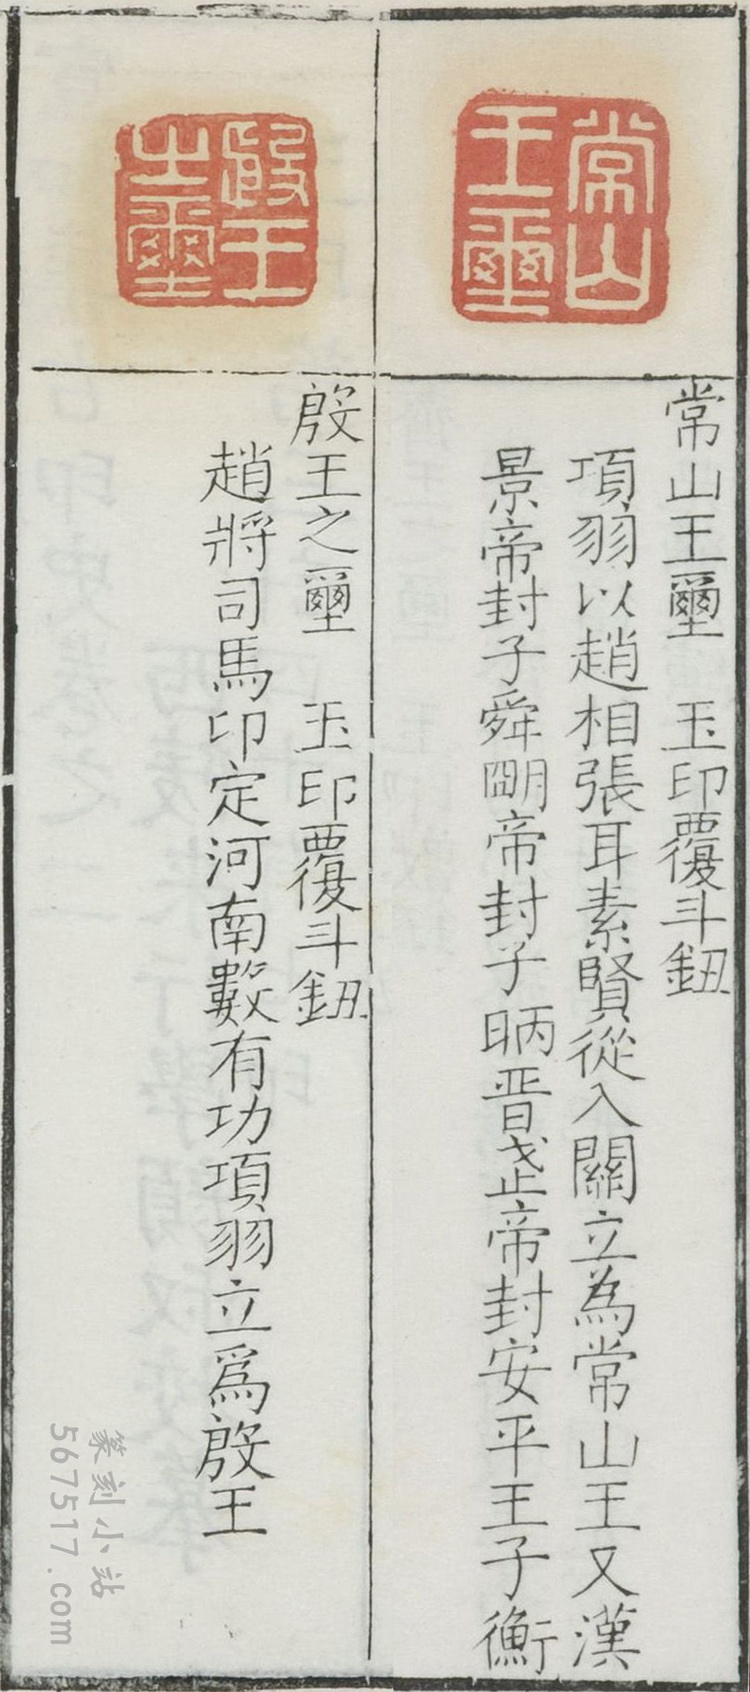 常山王璽
常山王璽　玉印覆斗鈕
項羽以趙相張耳素賢從入關立為常山王又漢
景帝封子舜朙帝封子昞晋武帝封安平王子衡
殷王之璽
殷王之璽　玉印覆斗鈕
趙將司馬卬定河南數有功項羽立爲殷王
篆刻小站
567517.com